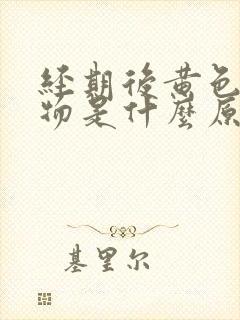 經期後黃色
物是什麼原
基里尔